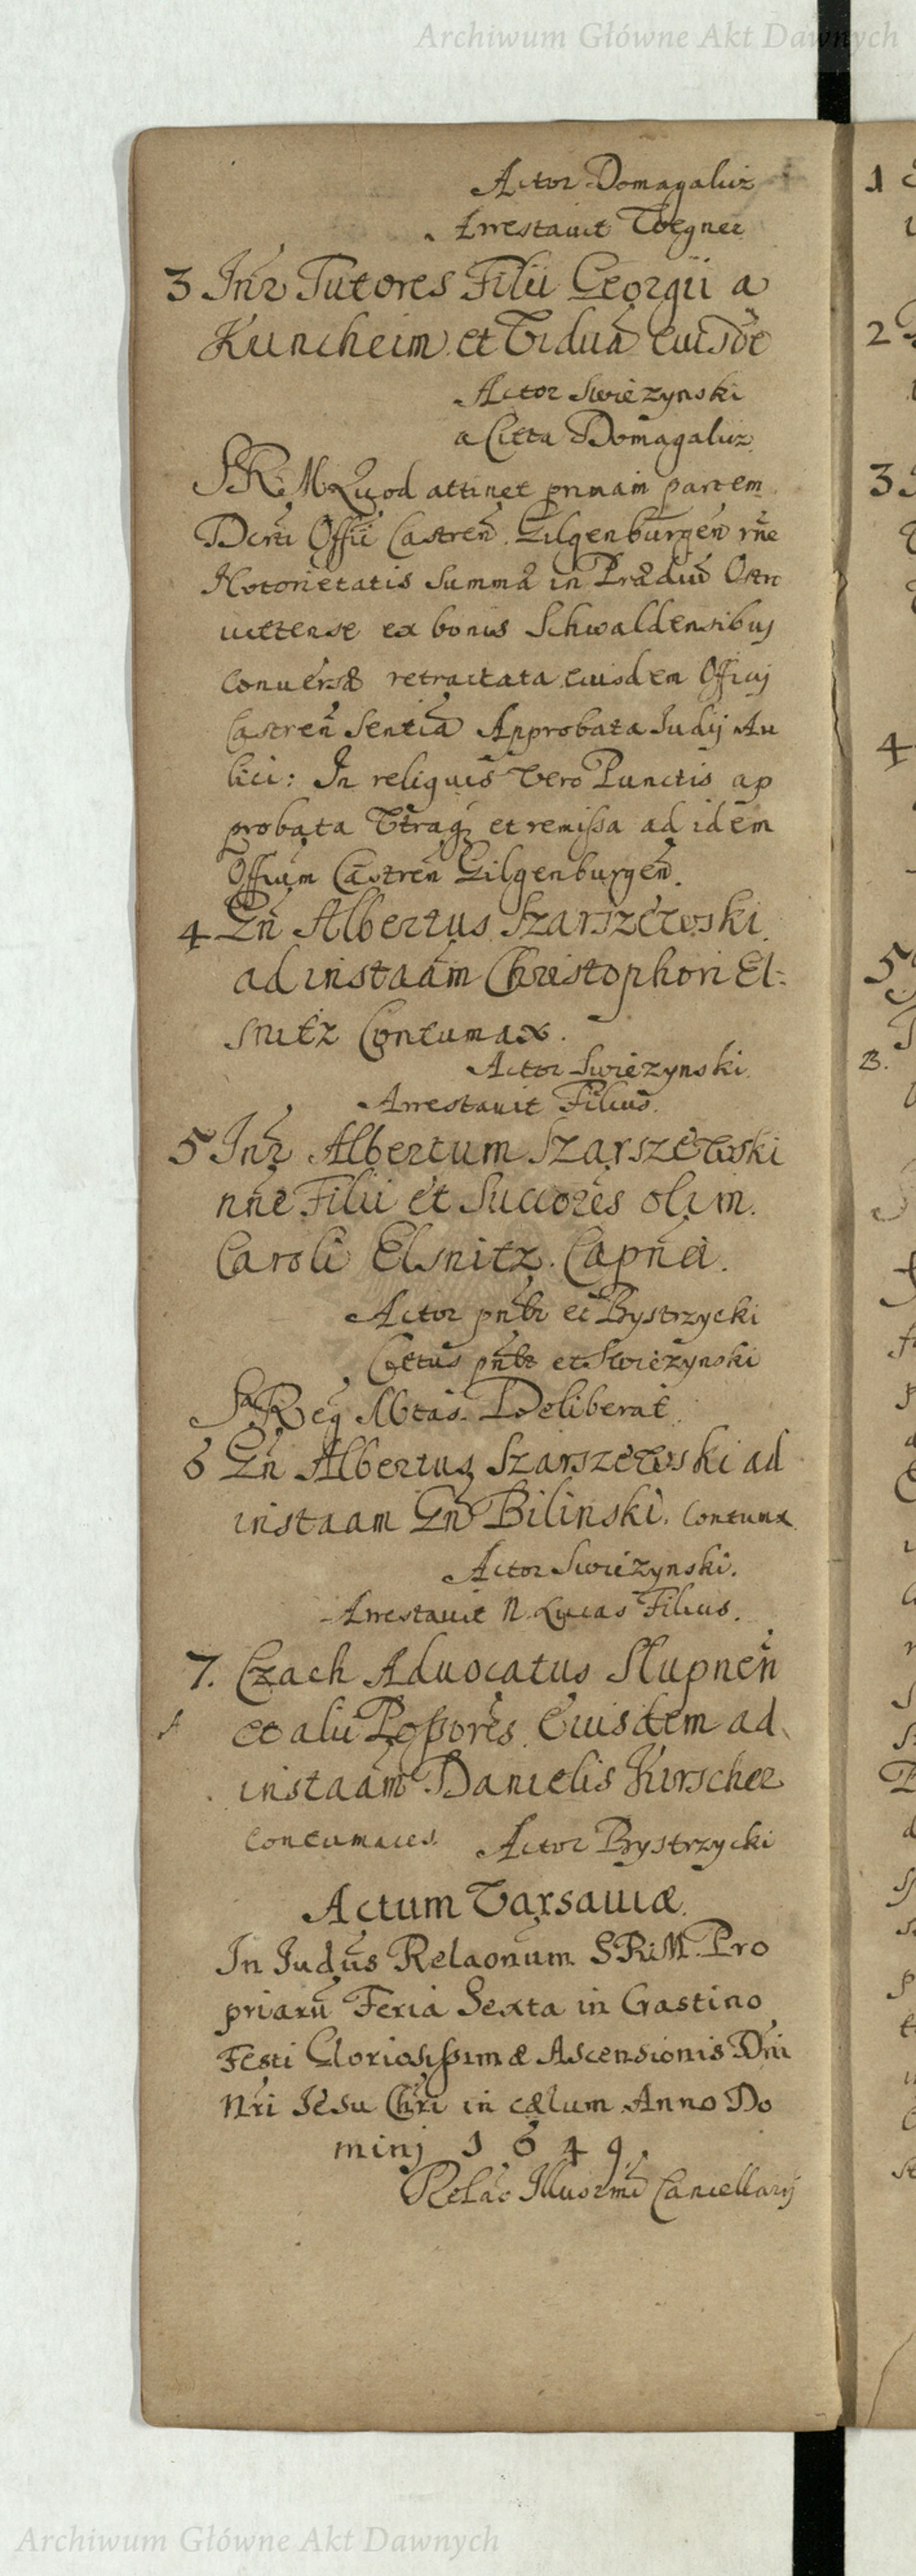 Archiwum Główne Akt Dawnych
Actor Domagalicz
Arrestauit Wegner
3 Inr Tutores Filii Georgii a
Kuncheim et Vidua eiusde
Actor Swiezynski
a Citta Domagalicz
SRM Quod attinet primam partem
Decri Offii Castren Gilgenburgen rne
Notorietatis Summæ in Prædiu Ostr
uittense ex bonis Schwaldensibus
conuersæ retractata eiusdem Officij
Castren Sentia Approbata Iudij Au
lici: In reliquis vero Punctis ap
probata Utraq et remissa ad idem
Offium Castren Gilgenburgen.
4 Gn Albertus Szarszewski
ad instaam Christophori El:
snitz Contumax.
Actor Swiezynski
Arrestauit Filius.
5 Inr Albertum Szarszewski
nne Filii et Succores olim
Caroli Elsnitz. Capnei.
Actor pnbr et Bystrzycki
Cittus pnbr et Swiezynski
Sa Reg Mtas Deliberat
6 Gn Albertus Szarszewski ad
instaam Gn Bilinski. Contumx
Actor Swiezynski.
Arrestauit N. Lucas Filius.
7. Czach Aduocatus Slupnen
et alii Possores Eiusdem ad
instaam Danielis Kirscher
Contumaces. Actor Bystrzycki
Actum Varsauiæ.
In Iudus Relaonum SRM Pro
priaru Feria Sexta in Crastino
Festi Gloriosissimæ Ascensionis Dni
Nri Iesu Chri in cælum Anno Do
minj 1649.
Relao Illusrmi Cancellarij
Archiwum Główne Akt Dawnych